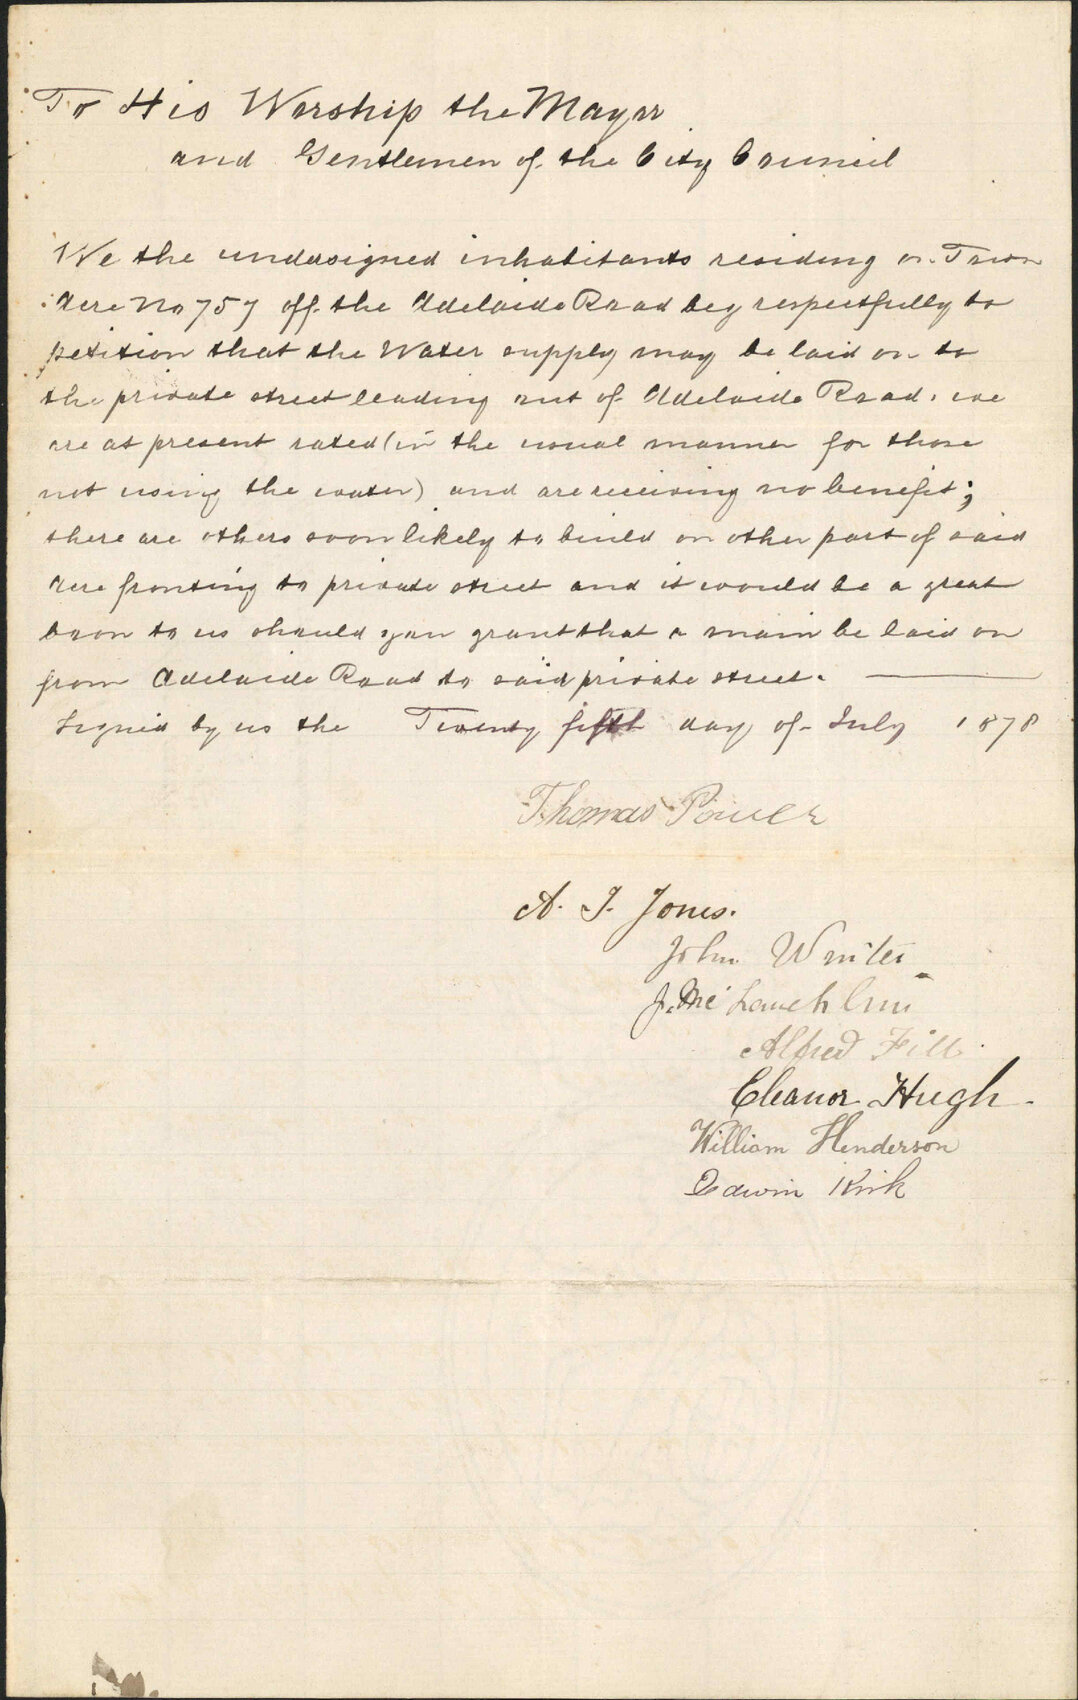 To His Worship the Mayor
and Gentlemen of the City Council
We the undersigned inhabitants residing on Town
Acre No 757 off the Adelaide Road beg respectfully to
petition that the Water supply may be laid on to
the private street leading out of Adelaide Road. we
are at present rated (in the usual manner for those
not using the water) and are receiving no benefit;
there are others soon likely to build on other part of said
Acre fronting to private street and it would be a great
boon to us should you grant that a main be laid on
from Adelaide Road to said private street.
Signed by us the Twenty fifth day of July 1878
Thomas Power
A. J. Jones.
John
J. Mc Lauchlin
Alfred Fill
Eleanor Hugh.
William Henderson
Edwin Kirk